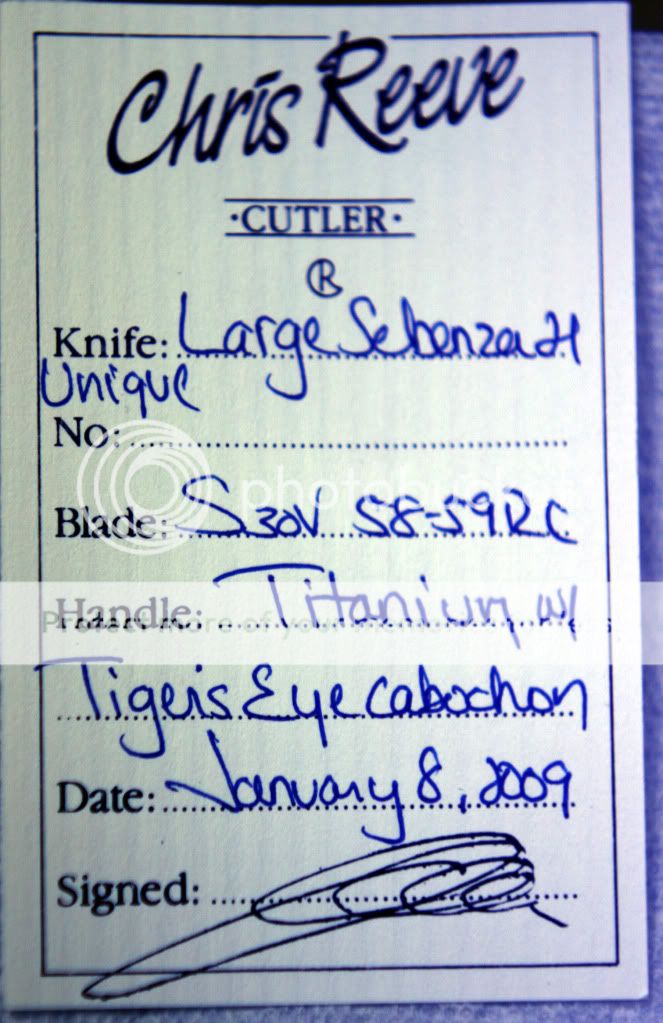 Chris Reeve
·CUTLER·
®
Knife: Large Sebenza 21
Unique
No:
photobucket
Blade: S30V 58-59RC
Handle: Titanium w/
Protect more of your memories for less
Tigers Eye Cabochon
Date: January 8, 2009
Signed: